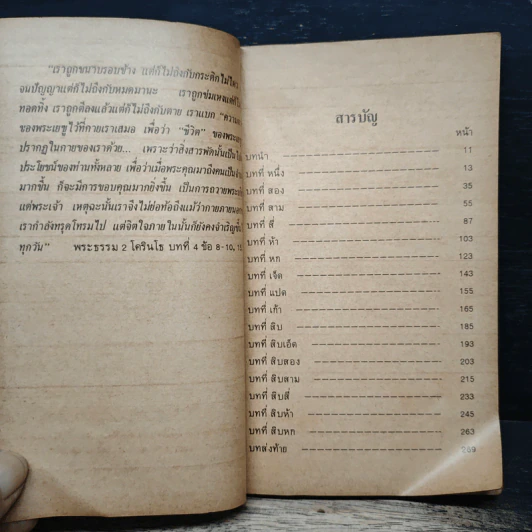 "เราถูกขนาบรอบข้าง แต่ก็ไม่ถึงกับกระดิกไม่ไหว
จนปัญญาแต่ก็ไม่ถึงกับหมดมานะ เราถูกข่มเหงแต่ก็ไม่
ทอดทิ้ง เราถูกตีลงแล้วแต่ก็ไม่ถึงกับตาย เราแบก "ความ
ของพระเยซูไว้ที่กายเราเสมอ เพื่อว่า "ชีวิต" ของพระเย
ปรากฏในกายของเราด้วย... เพราะว่าสิ่งสารพัดนั้นเป็นไป
ประโยชน์ของท่านทั้งหลาย เพื่อว่าเมื่อพระคุณมาถึงคนเป็น
มากขึ้น ก็จะมีการขอบคุณมากยิ่งขึ้น เป็นการถวายพระ
แต่พระเจ้า เหตุฉะนั้นเราจึงไม่ย่อท้อถึงแม้ว่ากายภายนอก
เรากำลังทรุดโทรมไป แต่จิตใจภายในนั้นก็ยังคงจำเริญขึ้น
ทุกวัน" พระธรรม 2 โครินโธ บทที่ 4 ข้อ 8-10,
สารบัญ
หน้า
บทนำ 11
บทที่ หนึ่ง 13
บทที่ สอง 35
บทที่ สาม 55
บทที่ สี่ 87
บทที่ ห้า 103
บทที่ หก 123
บทที่ เจ็ด 143
บทที่ แปด 155
บทที่ เก้า 165
บทที่ สิบ 185
บทที่ สิบเอ็ด 193
บทที่ สิบสอง 203
บทที่ สิบสาม 215
บทที่ สิบสี่ 233
บทที่ สิบห้า 245
บทที่ สิบหก 263
บทส่งท้าย 269